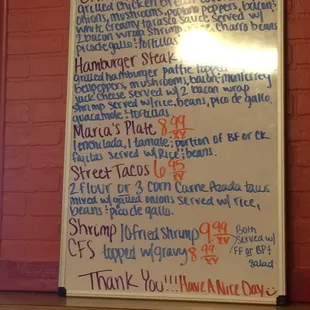 grilled chicken breast
onions, mushrooms, poblano peppers, bacon,
white creamy tarasco sauce served w/
2 bacon wrap shrimp, rice, charro beans
pico de gallo & tortillas
Hamburger Steak
grilled hamburger pattie topped
bellpeppers, mushrooms, bacon & monterrey
jack cheese served w/ 2 bacon wrap
shrimp served w/rice, beans, pico de gallo,
guacamole & tortillas
Maria's Plate 8.99
1 enchilada, 1 tamale, portion of BF or CK
fajitas served w/Rice & beans.
Street Tacos 6.95
2 flour or 3 corn Carne Asada tacos
mixed w/ grilled onions served w/ rice,
beans & pico de gallo.
Shrimp 10 fried shrimp 9.99 Both
served w/
CFS topped w/gravy 8.99 FF or BP &
salad
Thank You!!! Have A Nice Day